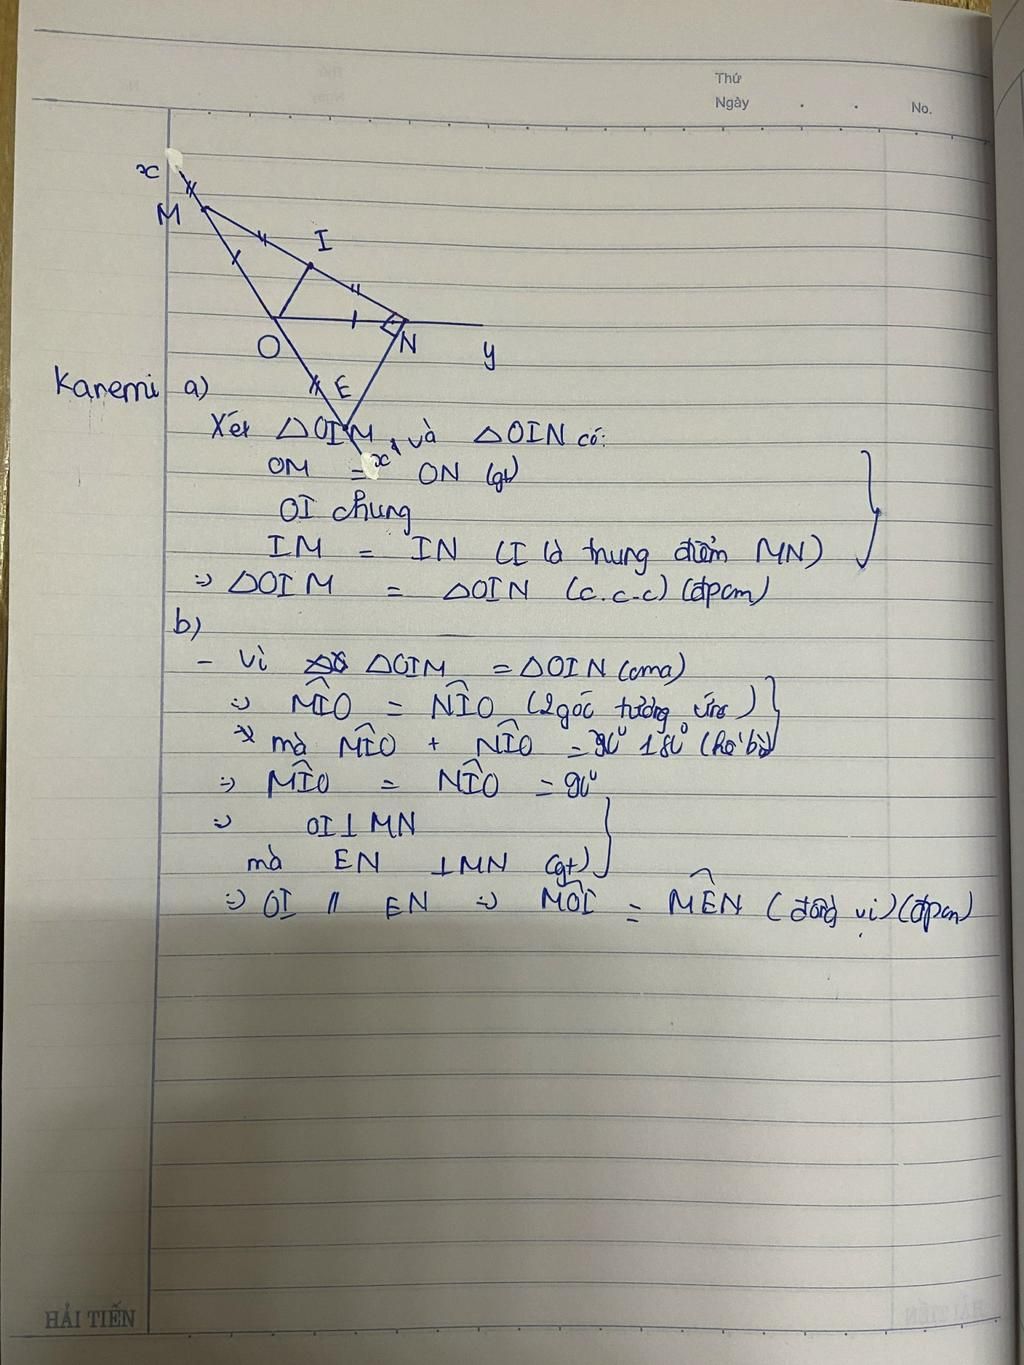 Thứ
Ngày . . No.
x
M
I
O
N
y
E
x'
Karemi a)
Xét △OIM và △OIN có:
OM = ON (gt)
OI chung
IM = IN (I là trung điểm MN)
=> △OIM = △OIN (c.c.c) (đpcm)
b)
- Vì △OIM = △OIN (cma)
=> MÎO = NÎO (2 góc tương ứng)
mà MÎO + NÎO = 180° (kề bù)
=> MÎO = NÎO = 90°
=> OI ⊥ MN
mà EN ⊥ MN (gt)
=> OI // EN => MÔI = MÊN (đồng vị) (đpcm)
HẢI TIẾN